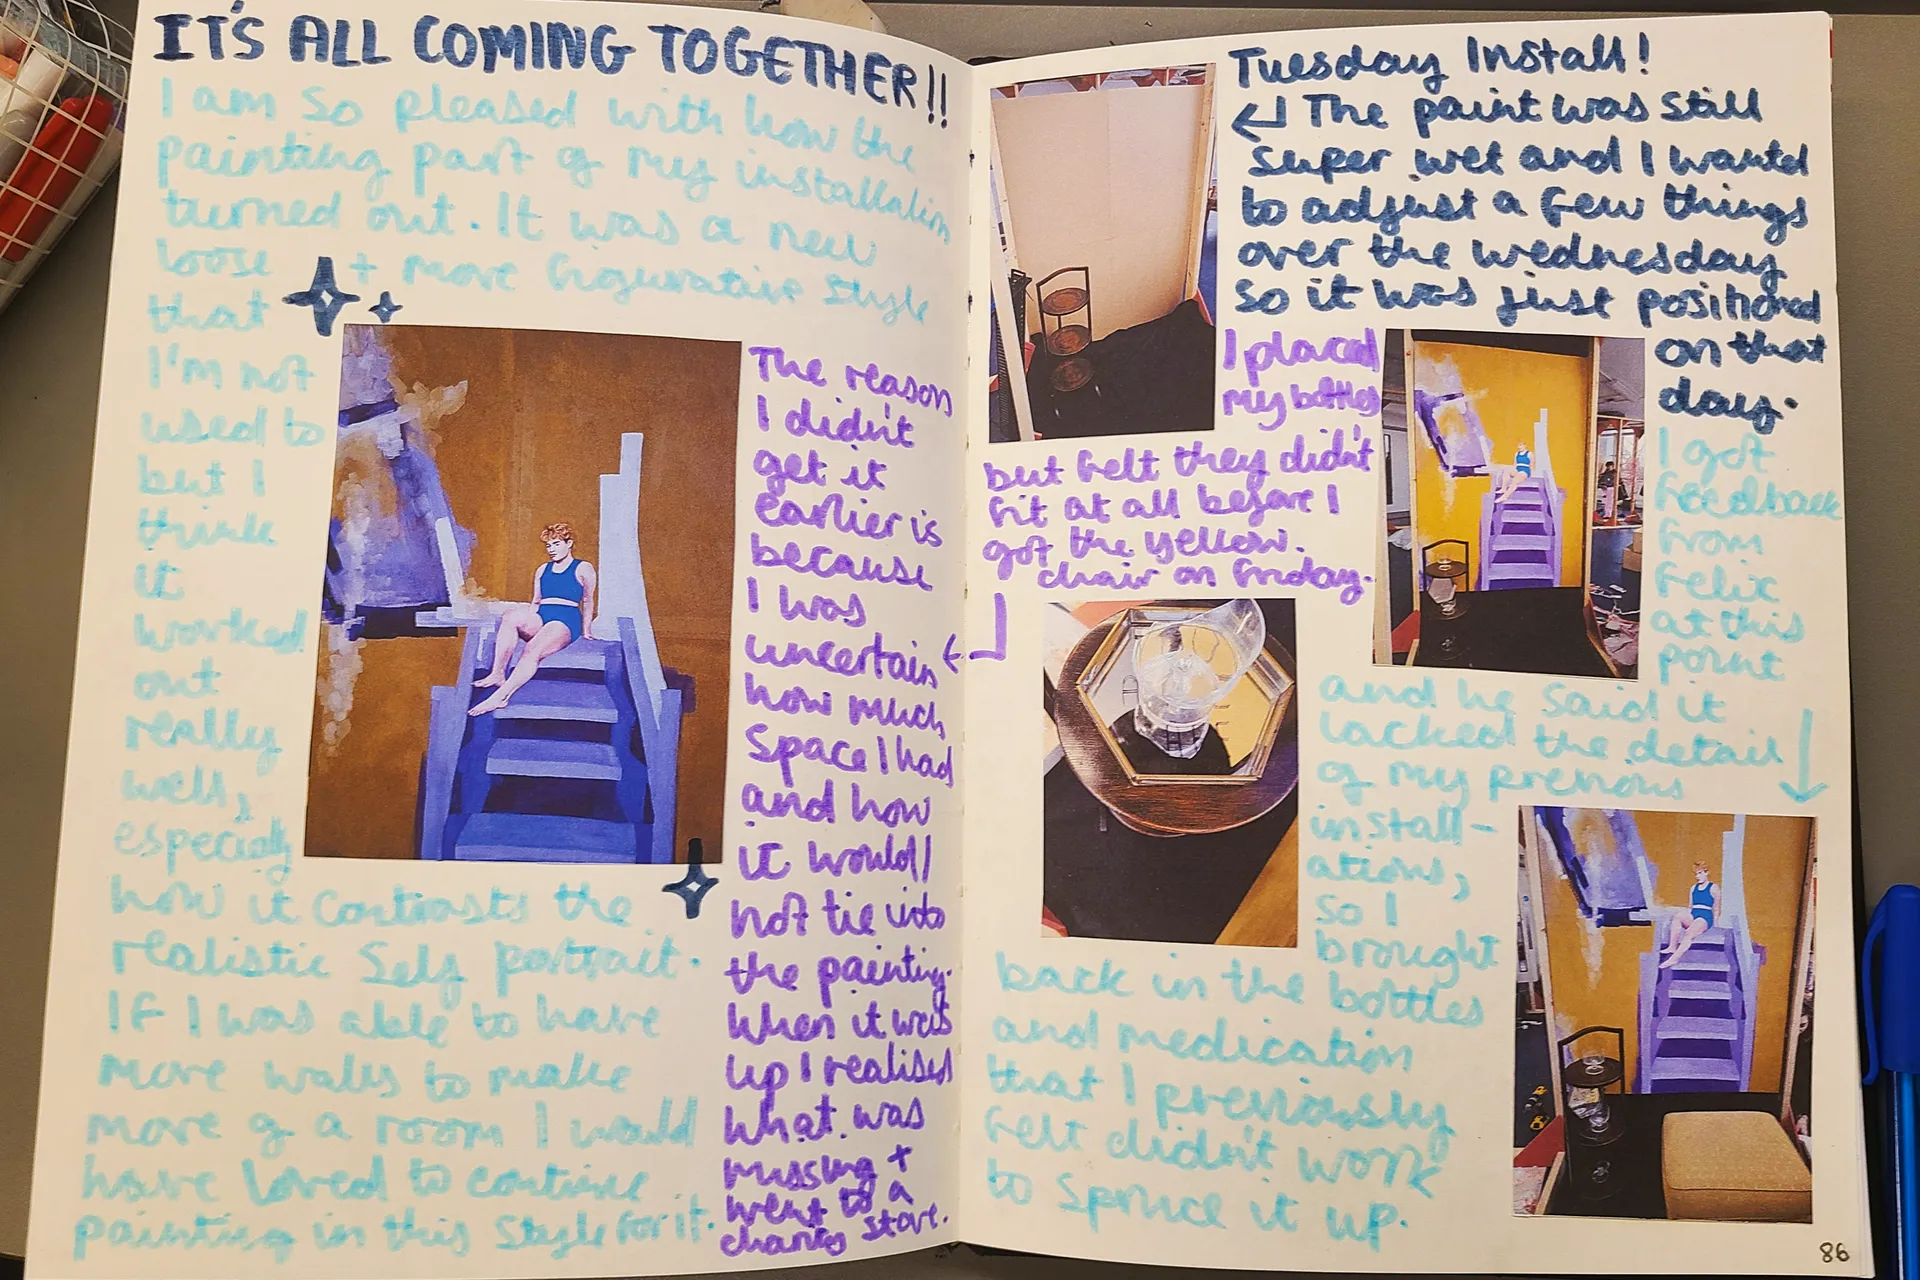 IT'S ALL COMING TOGETHER!!
I am so pleased with how the
painting part of my installation
turned out. It was a new
loose + more figurative style
that
I'm not
used to
but I
think
it
worked
out
really
well,
especially
how it contrasts the
realistic self portrait.
If I was able to have
more walls to make
more of a room I would
have loved to continue
painting in this style for it.
The reason
I didn't
get it
earlier is
because
I was
uncertain
how much
space I had
and how
it would/
not tie into
the painting.
When it was
up I realised
what was
missing +
went to a
charity store.
Tuesday Install!
The paint was still
super wet and I wanted
to adjust a few things
over the wednesday
so it was just positioned
on that
day.
I placed
my bottles
but felt they didn't
fit at all before I
got the yellow
chair on friday.
I got
feedback
from
Felix
at this
point
and he said it
lacked the detail
of my previous
install-
ations,
so I
brought
back in the bottles
and medication
that I previously
felt didn't work
to spruce it up.
86